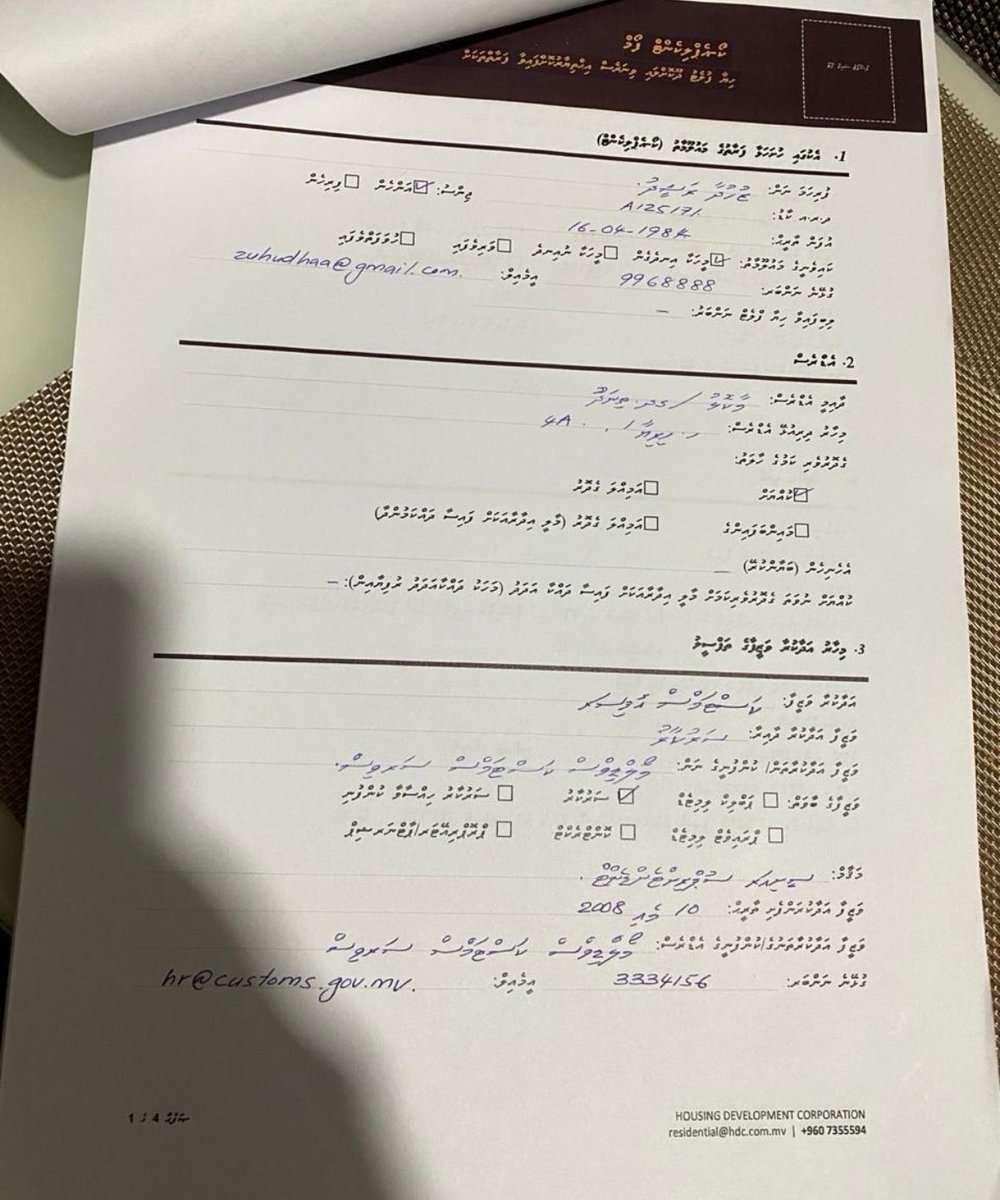 ކޯ-އެޕްލިކެންޓް ފޯމް
ހިޔާ ފުލެޓު ދޫކޮށްލައި ވިނަރެސް އިޚްތިޔާރުކޮށްފައިވާ ފަރާތްތަކަށް
1. އެކުގައި ހުށަހަޅާ ފަރާތުގެ މަޢުލޫމާތު (ކޯ-އެޕްލިކެންޓް)
ފުރިހަމަ ނަން: ޒުހުދާ ރަޝީދު. ޖިންސު: އަންހެން ފިރިހެން
ދ.ރ.އ ކާޑު: A125171
އުފަން ތާރީޚު: 16-04-1984
ކައިވެނީގެ މަޢުލޫމާތު: މީހަކާ އިނދެގެން މީހަކާ ނުއިނދެ ވަރިވެފައި ހުވަފަތްވެފައި
ގުޅޭނެ ނަންބަރ: 9968888 އީމެއިލް: zuhudhaa@gmail.com.
ލިބިފައިވާ ހިޔާ ފްލެޓް ނަންބަރު: –
2. އެޑްރެސް
ދާއިމީ އެޑްރެސް: މާކޮޅު / ގދ. ތިނަދޫ
މިހާރު ދިރިއުޅޭ އެޑްރެސް: 4A
ގެދޮރުވެރި ކަމުގެ ހާލަތު:
ކުއްޔަށް އަމިއްލަ ގެދޮރު
މައިންބަފައިންގެ އަމިއްލަ ގެދޮރު (މާލީ އިދާރާއަކަށް ފައިސާ ދައްކަމުންދާ)
އެހެނިހެން (ބަޔާންކުރޭ) –
ކުއްޔަށް ނުވަތަ ގެދޮރުވެރިކަމަށް މާލީ އިދާރާއަކަށް ފައިސާ ދައްކާ އަދަދު (މަހަކު ދައްކާއަދަދު ރުފިޔާއިން): –
3. މިހާރު އަދާކުރާ ވަޒީފާގެ ތަފްސީލު
އަދާކުރާ ވަޒީފާ: ކަސްޓަމްސް އޮފިސަރ
ވަޒީފާ އަދާކުރާ ދާއިރާ: ސަރުކާރު
ވަޒީފާ އަދާކުރާތަން/ ކުންފުނީގެ ނަން: މޯލްޑިވްސް ކަސްޓަމްސް ސަރވިސް.
ވަޒީފާގެ ބާވަތް: ޕަބްލިކް ލިމިޓެޑް ސަރުކާރު ސަރުކާރު ހިއްސާވާ ކުންފުނި
ޕްރައިވެޓް ލިމިޓެޑް ކޮންޓްރެކްޓް ޕްރޮޕްރިއޭޓަރ/ޕާޓްނަރޝިޕް
މަޤާމް: ސީނިއަރ ސުޕްރިންޓެންޑެންޓް.
ވަޒީފާ އަދާކުރަންފެށި ތާރީޚު: 10 މެއި 2008
ވަޒީފާ އަދާކުރާތަނުގެ/ކުންފުނީގެ އެޑްރެސް: މޯލްޑިވްސް ކަސްޓަމްސް ސަރވިސް
ގުޅޭނެ ނަންބަރ: 3334156 އީމެއިލް: hr@customs.gov.mv.
HOUSING DEVELOPMENT CORPORATION
residential@hdc.com.mv | +960 7355594
ސަފްޙާ 4 ގެ 1